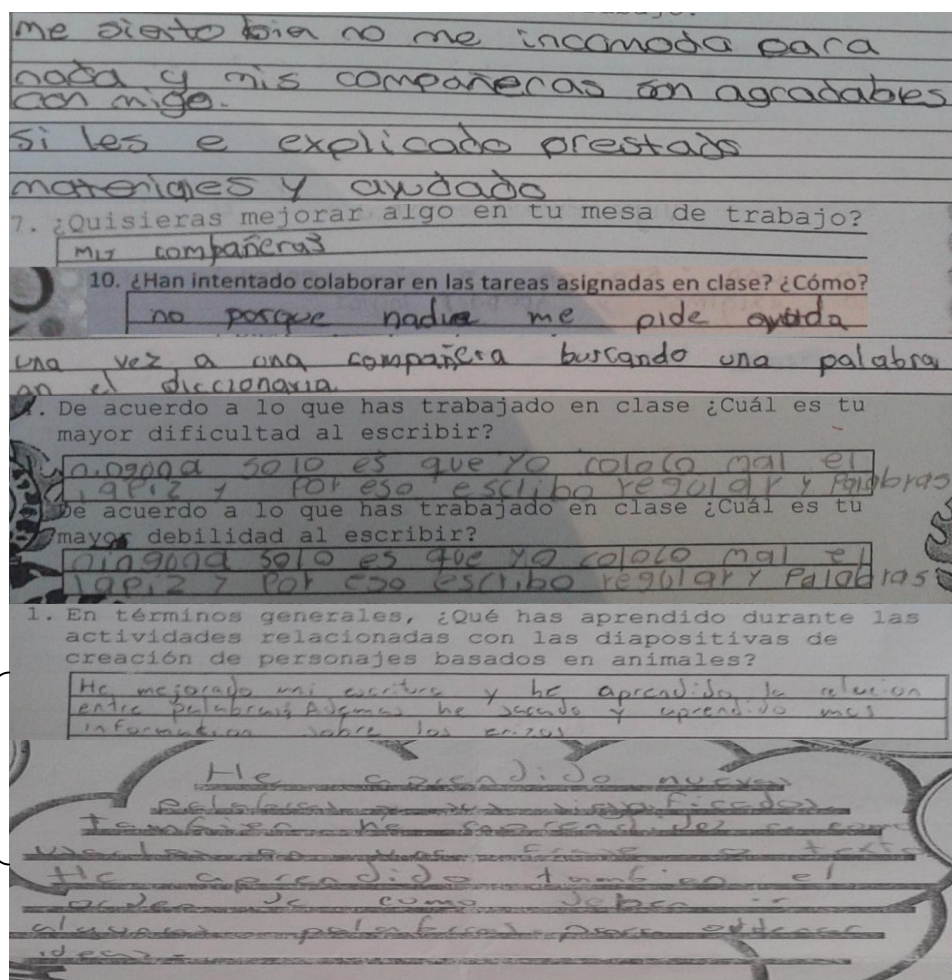 me siento bien no me incomoda para
nada y mis compañeras son agradables
con migo.
si les e explicado prestado
materiales y ayudado
7. ¿Quisieras mejorar algo en tu mesa de trabajo?
Mis compañeras
10. ¿Han intentado colaborar en las tareas asignadas en clase? ¿Cómo?
no porque nadie me pide ayuda
una vez a una compañera buscando una palabra
en el diccionario
. De acuerdo a lo que has trabajado en clase ¿Cuál es tu
mayor dificultad al escribir?
ninguna solo es que yo coloco mal el
lapiz y por eso escribo regular y palabras
De acuerdo a lo que has trabajado en clase ¿Cuál es tu
mayor debilidad al escribir?
ninguna solo es que yo coloco mal el
lapiz y por eso escribo regular y palabras
1. En términos generales, ¿Qué has aprendido durante las
actividades relacionadas con las diapositivas de
creación de personajes basados en animales?
He mejorado mi escritura y he aprendido la relacion
entre palabras, Ademas he sacado y aprendido mas
informacion sobre los erizos
He aprendido nuevas
palabras y sus significados
Tambien he aprendido a como
usarlas en una frase o texto
He aprendido tambien el
orden de como deben ir
algunas palabras para
ideas.